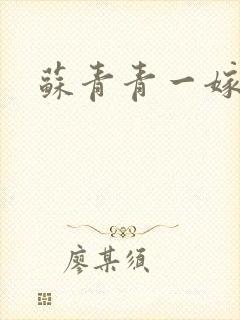 蘇青青一嫁
廖某须